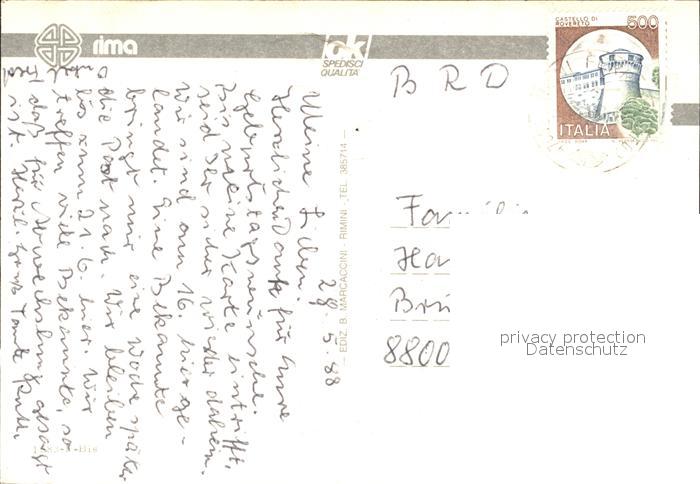 rima
ok
SPEDISCI
QUALITA'
CASTELLO DI
ROVERETO
500
ITALIA
B R D
Familie
Ha
Brü
8800
privacy protection
Datenschutz
EDIZ. B. MARCACCINI - RIMINI - TEL. 385714
29.5.88
Meine Lieben.
Herzlichen Dank für Eure
Geburtstagswünsche.
Bis meine Karte eintrifft,
seid Ihr sicher wieder daheim.
Wir sind am 16. hier ge-
landet. Eine Bekannte
bringt mir eine Woche später
die Post nach. Wir bleiben
bis zum 21.6. hier. Wir
treffen viele Bekannte, so
daß für Abwechslung gesorgt
ist. Herzl. Grüße Tante